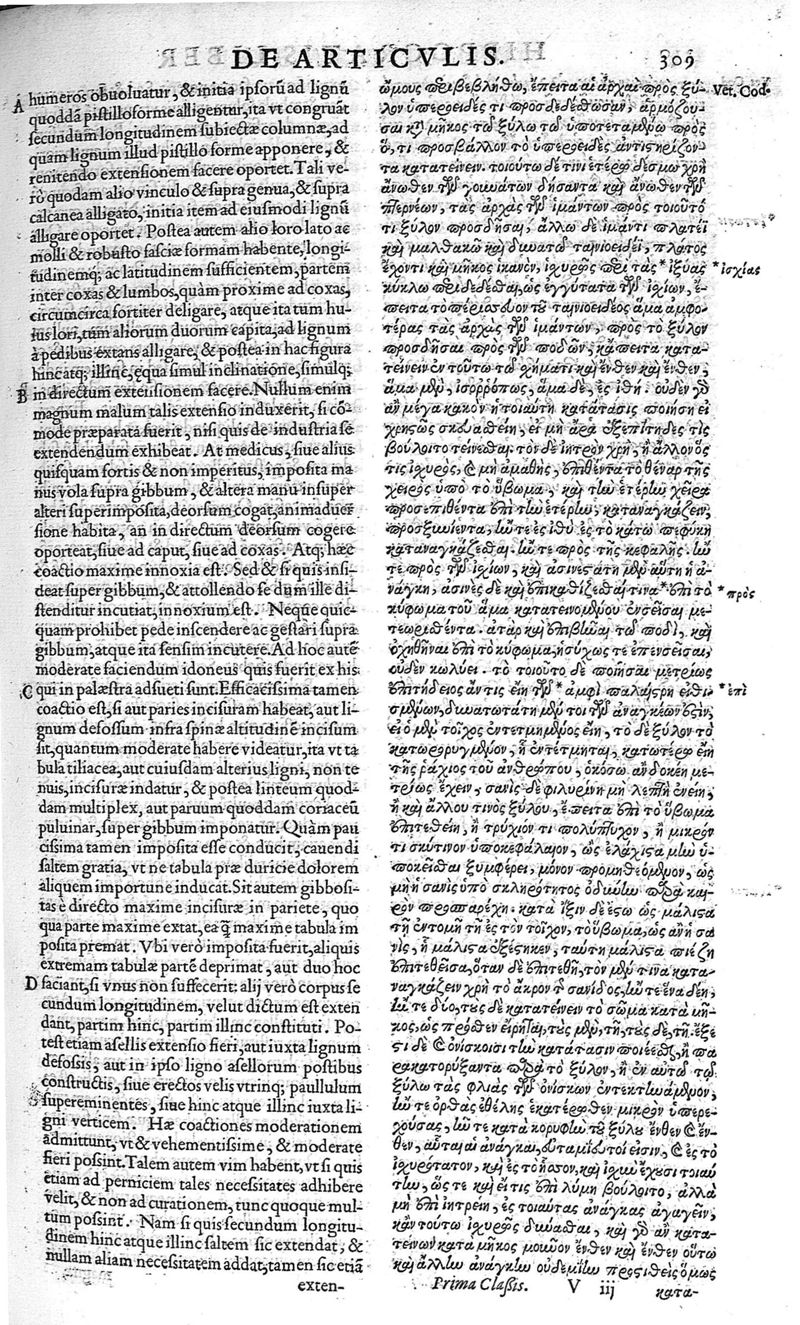 DE ARTICVLIS.
309
A humeros obuoluatur, & initia ipsorū ad lignū
quoddā pistilloforme alligentur, ita vt congruāt
secundum longitudinem subiectæ columnæ, ad
quam lignum illud pistillo forme apponere, &
renitendo extensionem facere oportet. Tali ve-
rò quodam alio vinculo & supra genua, & supra
calcanea alligato, initia item ad eiusmodi lignū
alligare oportet. Postea autem alio loro lato ac
molli & robusto fasciæ formam habente, longi-
tudinemq; ac latitudinem sufficientem, partem
inter coxas & lumbos, quàm proxime ad coxas,
circumcirca fortiter deligare, atque ita tum hu-
ius lori, tùm aliorum duorum capita, ad lignum
à pedibus extans alligare, & postea in hac figura
hinc atq; illinc, ęqua simul inclinatione, simulq;
B in directum extensionem facere. Nullum enim
magnum malum talis extensio induxerit, si cō-
mode præparata fuerit, nisi quis de industria se
extendendum exhibeat. At medicus, siue alius
quisquam fortis & non imperitus, imposita ma
nus vola supra gibbum, & altera manu insuper
alteri superimposita, deorsum cogat, animaduer
sione habita, an in directum deorsum cogere
oporteat, siue ad caput, siue ad coxas. Atq; hæc
coactio maxime innoxia est. Sed & si quis insi-
deat super gibbum, & attollendo se dum ille di-
stenditur incutiat, innoxium est. Neque quic-
quam prohibet pede inscendere ac gestari supra
gibbum, atque ita sensim incutere. Ad hoc autē
moderate faciendum idoneus quis fuerit ex his
C qui in palæstra adsueti sunt. Efficacissima tamen
coactio est, si aut paries incisuram habeat, aut li-
gnum defossum infra spinæ altitudinē incisum
sit, quantum moderate habere videatur, ita vt ta
bula tiliacea, aut cuiusdam alterius ligni, non te
nuis, incisuræ indatur, & postea linteum quod-
dam multiplex, aut paruum quoddam coriaceū
puluinar, super gibbum imponatur. Quàm pau
cissima tamen imposita esse conducit, cauendi
saltem gratia, vt ne tabula præ duricie dolorem
aliquem importune inducat. Sit autem gibbosi-
tas è directo maxime incisuræ in pariete, quo
qua parte maxime extat, ea q̄; maxime tabula im
posita premat. Vbi verò imposita fuerit, aliquis
extremam tabulæ partē deprimat, aut duo hoc
D faciant, si vnus non suffecerit: alij verò corpus se
cundum longitudinem, velut dictum est exten
dant, partim hinc, partim illinc constituti. Po-
test etiam asellis extensio fieri, aut iuxta lignum
defossis, aut in ipso ligno asellorum postibus
constructis, siue erectos velis vtrinq; paullulum
supereminentes, siue hinc atque illinc iuxta li-
gni verticem. Hæ coactiones moderationem
admittunt, vt & vehementissime, & moderate
fieri possint. Talem autem vim habent, vt si quis
etiam ad perniciem tales necessitates adhibere
velit, & non ad curationem, tunc quoque mul-
tum possint. Nam si quis secundum longitu-
dinem hinc atque illinc saltem sic extendat, &
nullam aliam necessitatem addat, tamen sic etiā
exten-
ὤμους περιβεβλήθω, ἔπειτα αἱ ἀρχαὶ πρὸς ξύ- Vet. Cod.
λον ὑπεροειδές τι προσδεδέσθωσαν, ἁρμόζου-
σαι κτ̀ μῆκος τῷ ξύλῳ τῷ ὑποτεταμένῳ πρὸς
ὅ, τι προσβάλλον τὸ ὑπεροειδὲς ἀντιστηρίζον-
τα κατατείνειν. τοιούτῳ δέ τινι ἑτέρῳ δεσμῷ χρὴ
ἄνωθεν τῶν γουνάτων δήσαντα καὶ ἄνωθεν τῶν
πτερνέων, τὰς ἀρχὰς τῶν ἱμάντων πρὸς τοιοῦτό
τι ξύλον προσδῆσαι, ἄλλῳ δὲ ἱμάντι πλατεῖ
καὶ μαλθακῷ καὶ δυνατῷ ταινιοειδεῖ, πλάτος
ἔχοντι καὶ μῆκος ἱκανὸν, ἰσχυρῶς περὶ τὰς *ἰξύας *ἰσχίας
κύκλῳ περιδεδέσθαι, ὡς ἐγγύτατα τῶν ἰσχίων, ἔ-
πειτα τὸ περισσεῦον τοῦ ταινιοειδέος ἅμα ἀμφο-
τέρας τὰς ἀρχὰς τῶν ἱμάντων, πρὸς τὸ ξύλον
προσδῆσαι πρὸς ποδῶν, κἄπειτα κατα-
τείνειν ἐν τούτῳ τῷ χήματι καὶ ἔνθεν καὶ ἔνθεν,
ἅμα μὲν, ἰσορρόπως, ἅμα δὲ, ἐς ἰθύ. οὐδὲν γὸ
ἂν μέγα κακὸν ἡ τοιαύτη κατάτασις ποιήσῃ εἰ
χρηστῶς σκευασθείη, εἰ μὴ ἄρα ἐξεπίτηδες τὶς
βούλοιτο τείνεσθαι. τὸν δὲ ἰητρὸν χρὴ, ἢ ἄλλον ὅς
τις ἰσχυρὸς, & μὴ ἀμαθὴς, ἐπιθέντα τὸ θέναρ τῆς
χειρὸς ὑπὸ τὸ ὕβωμα, καὶ τὴν ἑτέρην χεῖρα
προσεπιθέντα ἐπὶ τὴν ἑτέρην, καταναγκάζειν,
προσξυνιέντα, ἤν τε ἐς ἰθὺ ἐς τὸ κάτω πεφύκῃ
καταναγκάζεσθαι. ἤν τε πρὸς τῆς κεφαλῆς. ἤν
τε πρὸς τῶν ἰσχίων, καὶ ἀσινεστάτη μὲν αὕτη ἡ ἀ-
νάγκη, ἀσινὲς δὲ καὶ ἐπικαθίζεσθαί τινα *ἐπὶ τὸ *πρὸς
κύφωμα τοῦ ἅμα κατατεινομένου ἐνσεῖσαι με-
τεωρισθέντα. ἀτὰρ καὶ ἐπιβῆναι τῷ ποδὶ, καὶ
ὀχηθῆναι ἐπὶ τὸ κύφωμα, ἡσύχως τε ἐπενσεῖσαι,
οὐδὲν κωλύει. τὸ τοιοῦτο δὲ ποιῆσαι μετρίως
ἐπιτήδειος ἄν τις εἴη τῶν *ἀμφὶ παλαίστρῃ εἰθι- *ἐπὶ
σμένων, δυνατωτάτη μέν τοι τῶν ἀναγκέων ἐστὶν,
εἰ ὁ μὲν τοῖχος ἐντετμημένος εἴη, τὸ δὲ ξύλον τὸ
κατωρυγμένον, ᾗ ἐντέτμηται, κατωτέρω εἴη
τῆς ῥάχιος τοῦ ἀνθρώπου, ὁκόσῳ ἂν δοκέῃ με-
τρίως ἔχειν, σανὶς δὲ φιλυρίνη μὴ λεπτὴ ἐνείη,
ἢ καὶ ἄλλου τινὸς ξύλου, ἔπειτα ἐπὶ τὸ ὕβωμα
ἐπιτεθείη, ἢ τρύχιόν τι πολύπτυχον, ἢ μικρόν
τι σκύτινον ὑποκεφάλαιον, ὡς ἐλάχιστα μὴν ὑ-
ποκεῖσθαι ξυμφέρει, μόνον προμηθεόμενον, ὡς
μὴ ἡ σανὶς ὑπὸ σκληρότητος ὀδύνην παρὰ και-
ρὸν προπαρέχῃ. κατὰ ἴξιν δὲ ἔσω ὡς μάλιστα
τῇ ἐντομῇ τῇ ἐς τὸν τοῖχον, τὸ ὕβωμα, ὡς ἂν ἡ σα
νὶς, ᾗ μάλιστα ἐξέστηκεν, ταύτῃ μάλιστα πιέζῃ
ἐπιτεθεῖσα, ὅταν δὲ ἐπιτεθῇ, τὸν μέν τινα κατα-
ναγκάζειν χρὴ τὸ ἄκρον τῆς σανίδος, ἤν τε ἕνα δέῃ,
ἤν τε δύο, τοὺς δὲ κατατείνειν τὸ σῶμα κατὰ μῆ-
κος, ὡς πρόσθεν εἴρηται, τοὺς μὲν, τῇ, τοὺς δὲ, τῇ. ἔξε
στι δὲ & ὀνίσκοισι τὴν κατάτασιν ποιέεσθαι, ἢ πα
ρακατορύξαντα παρὰ τὸ ξύλον, ἢ ἐν αὐτῷ τῷ
ξύλῳ τὰς φλιὰς τῶν ὀνίσκων ἐντεκτηνάμενον,
ἤν τε ὀρθὰς ἐθέλῃς ἑκατέρωθεν μικρὸν ὑπερε-
χούσας, ἤν τε κατὰ κορυφὴν τοῦ ξύλου ἔνθεν & ἔν-
θεν, αὗται αἱ ἀνάγκαι, εὐταμίευτοί εἰσιν, & ἐς τὸ
ἰσχυρότατον, καὶ ἐς τὸ ἧσσον, καὶ ἰσχὺν ἔχουσι τοιαύ
την, ὥς τε καὶ εἴ τις ἐπὶ λύμῃ βούλοιτο, ἀλλὰ
μὴ ἐπὶ ἰητρείῃ, ἐς τοιαύτας ἀνάγκας ἀγαγεῖν,
κἂν τούτῳ ἰσχυρῶς δύνασθαι, καὶ γὸ ἂν κατα-
τείνων κατὰ μῆκος μοῦνον ἔνθεν καὶ ἔνθεν οὕτω
καὶ ἄλλην ἀνάγκην οὐδεμίην προστιθεὶς ὅμως
Prima Classis. V iij κατα-